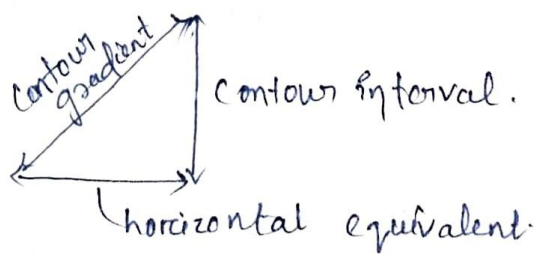 contour
gradient
contour interval.
horizontal equivalent.